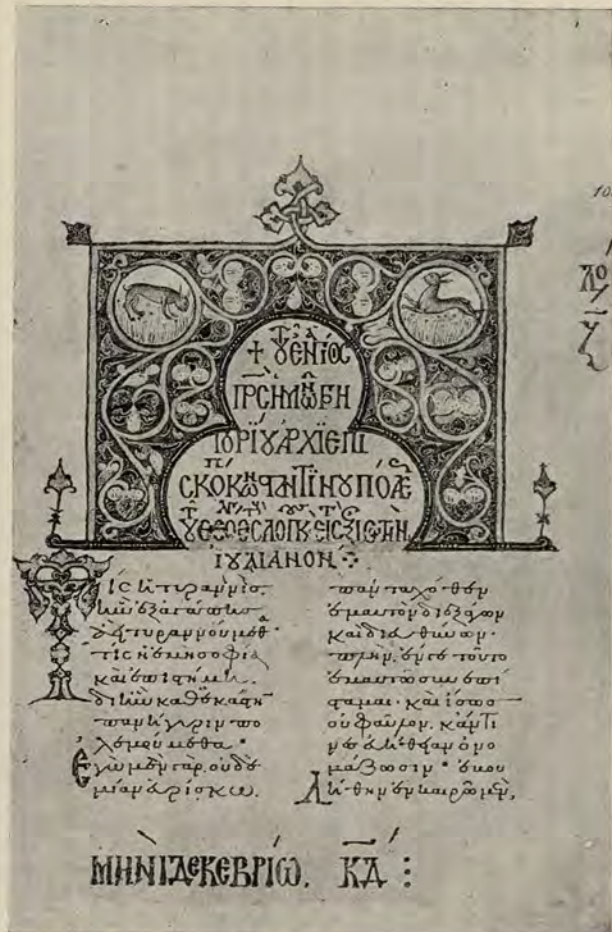 + ΤΟΥ ΕΝ ΑΓΙΟΙΣ
ΠΡΣ ΗΜΩΝ ΓΡΗ
ΓΟΡΙΟΥ ΑΡΧΙΕΠΙ
ΣΚΟΠ ΚΩΝΣΤΑΝΤΙΝΟΥΠΟΛΕ
ἸΟΥΛΙΑΝΟΝ
Τίς ἡ τυραννίς.
ἣν ἐξ ἀγάπης
ἀεὶ τυραννούμεθα·
τίς ἡ ἐμὴ σοφία
καὶ ἐπιστήμη.
δι ἣν καθεκάστην
πανήγυριν πο
λεμούμεθα·
Ἐγὼ μὲν γὰρ. οὐδε
μίαν εὑρίσκω.
πανταχόθεν
ἐμαυτὸν διεξάγων
καὶ διευθύνων·
πλὴν. ἕν γε τοῦτο
ἐμαυτῶ συνεπί
σταμαι· καὶ ἴσως
οὐ φαῦλον. κἄν τι
νες εὐήθειαν ὀνο
μάζωσιν·
ΜΗΝῚ ΔΕΚΕΒΡΊΩ. ΚΔ :